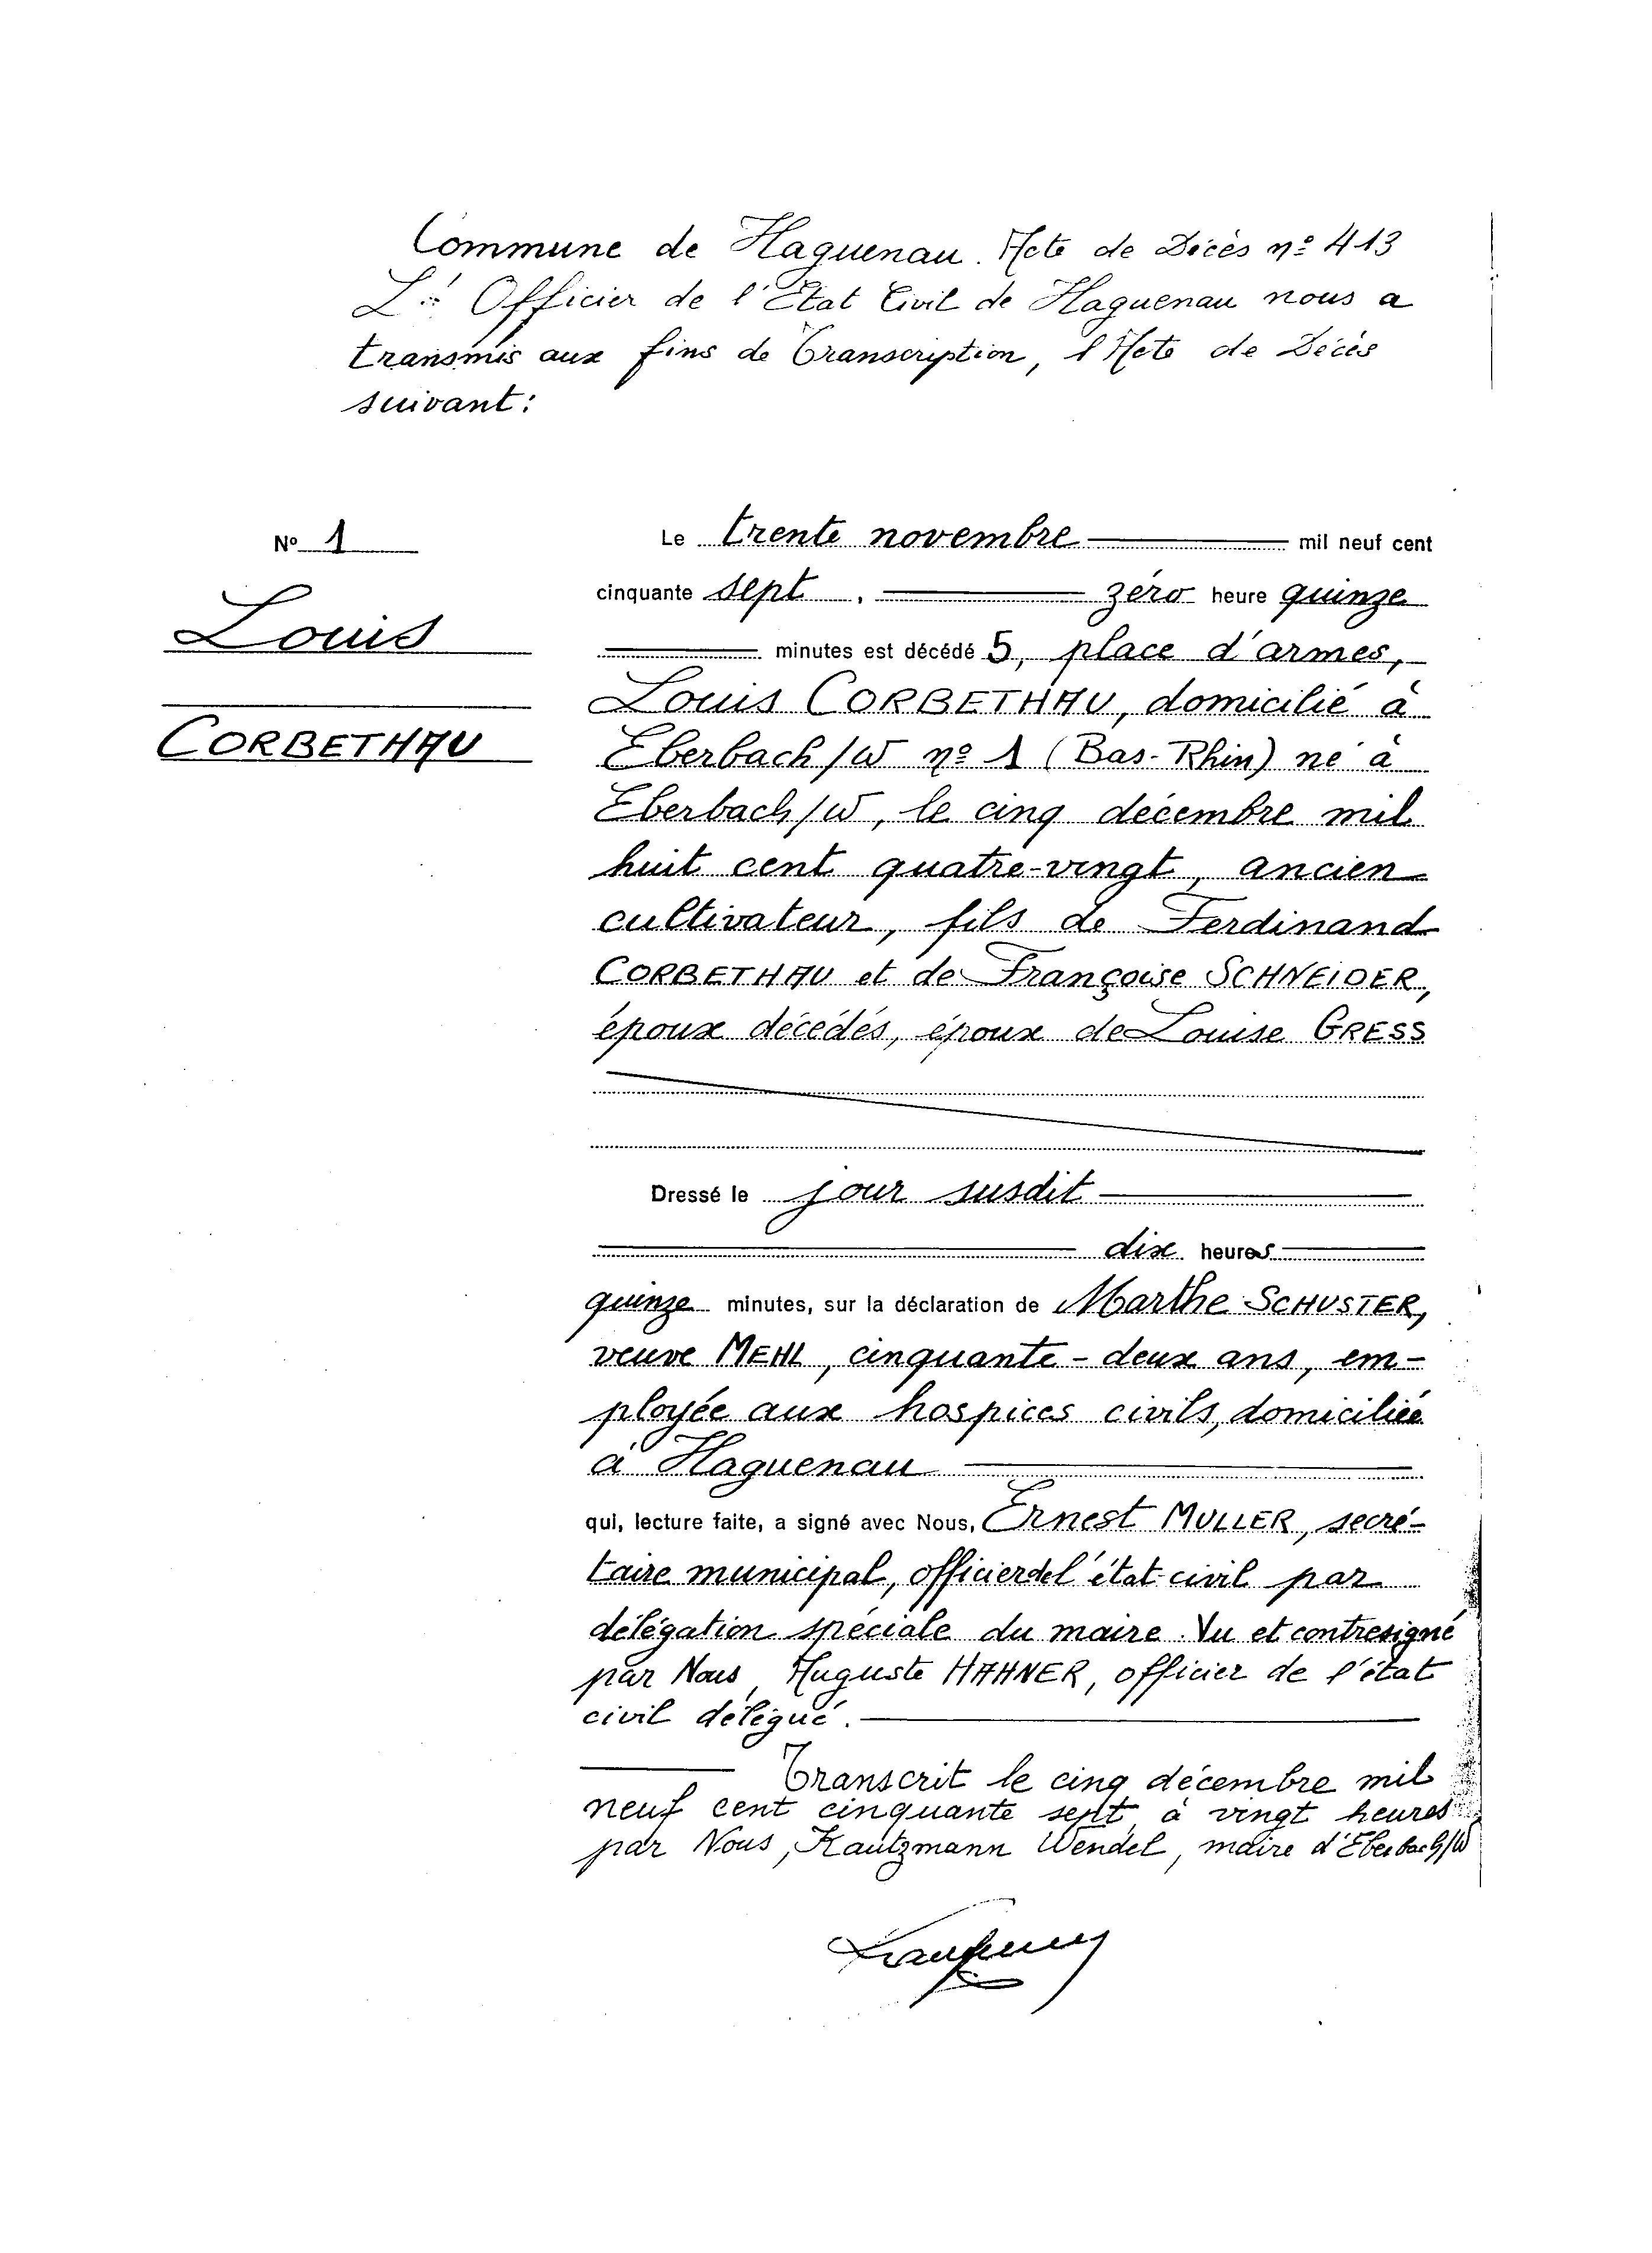 Commune de Haguenau. Acte de Décès nº 413
L' Officier de l'Etat Civil de Haguenau nous a
transmis aux fins de Transcription, l'Acte de Décès
suivant:
Nº 1
Louis
CORBETHAU
Le trente novembre mil neuf cent
cinquante sept, zéro heure quinze
minutes est décédé 5, place d'armes,
Louis CORBETHAU, domicilié à
Eberbach/W nº 1 (Bas-Rhin) né à
Eberbach/W, le cinq décembre mil
huit cent quatre-vingt, ancien
cultivateur, fils de Ferdinand
CORBETHAU et de Françoise SCHNEIDER,
époux décédés, époux de Louise GRESS
Dressé le jour susdit
dix heures
quinze minutes, sur la déclaration de Marthe SCHUSTER,
veuve MEHL, cinquante-deux ans, em-
ployée aux hospices civils, domiciliée
à Haguenau
qui, lecture faite, a signé avec Nous, Ernest MULLER, secré-
taire municipal, officier de l'état civil par
délégation spéciale du maire. Vu et contresigné
par Nous, Auguste HAHNER, officier de l'état
civil délégué.
Transcrit le cinq décembre mil
neuf cent cinquante sept, à vingt heures
par Nous, Kautzmann Wendel, maire d'Eberbach/W